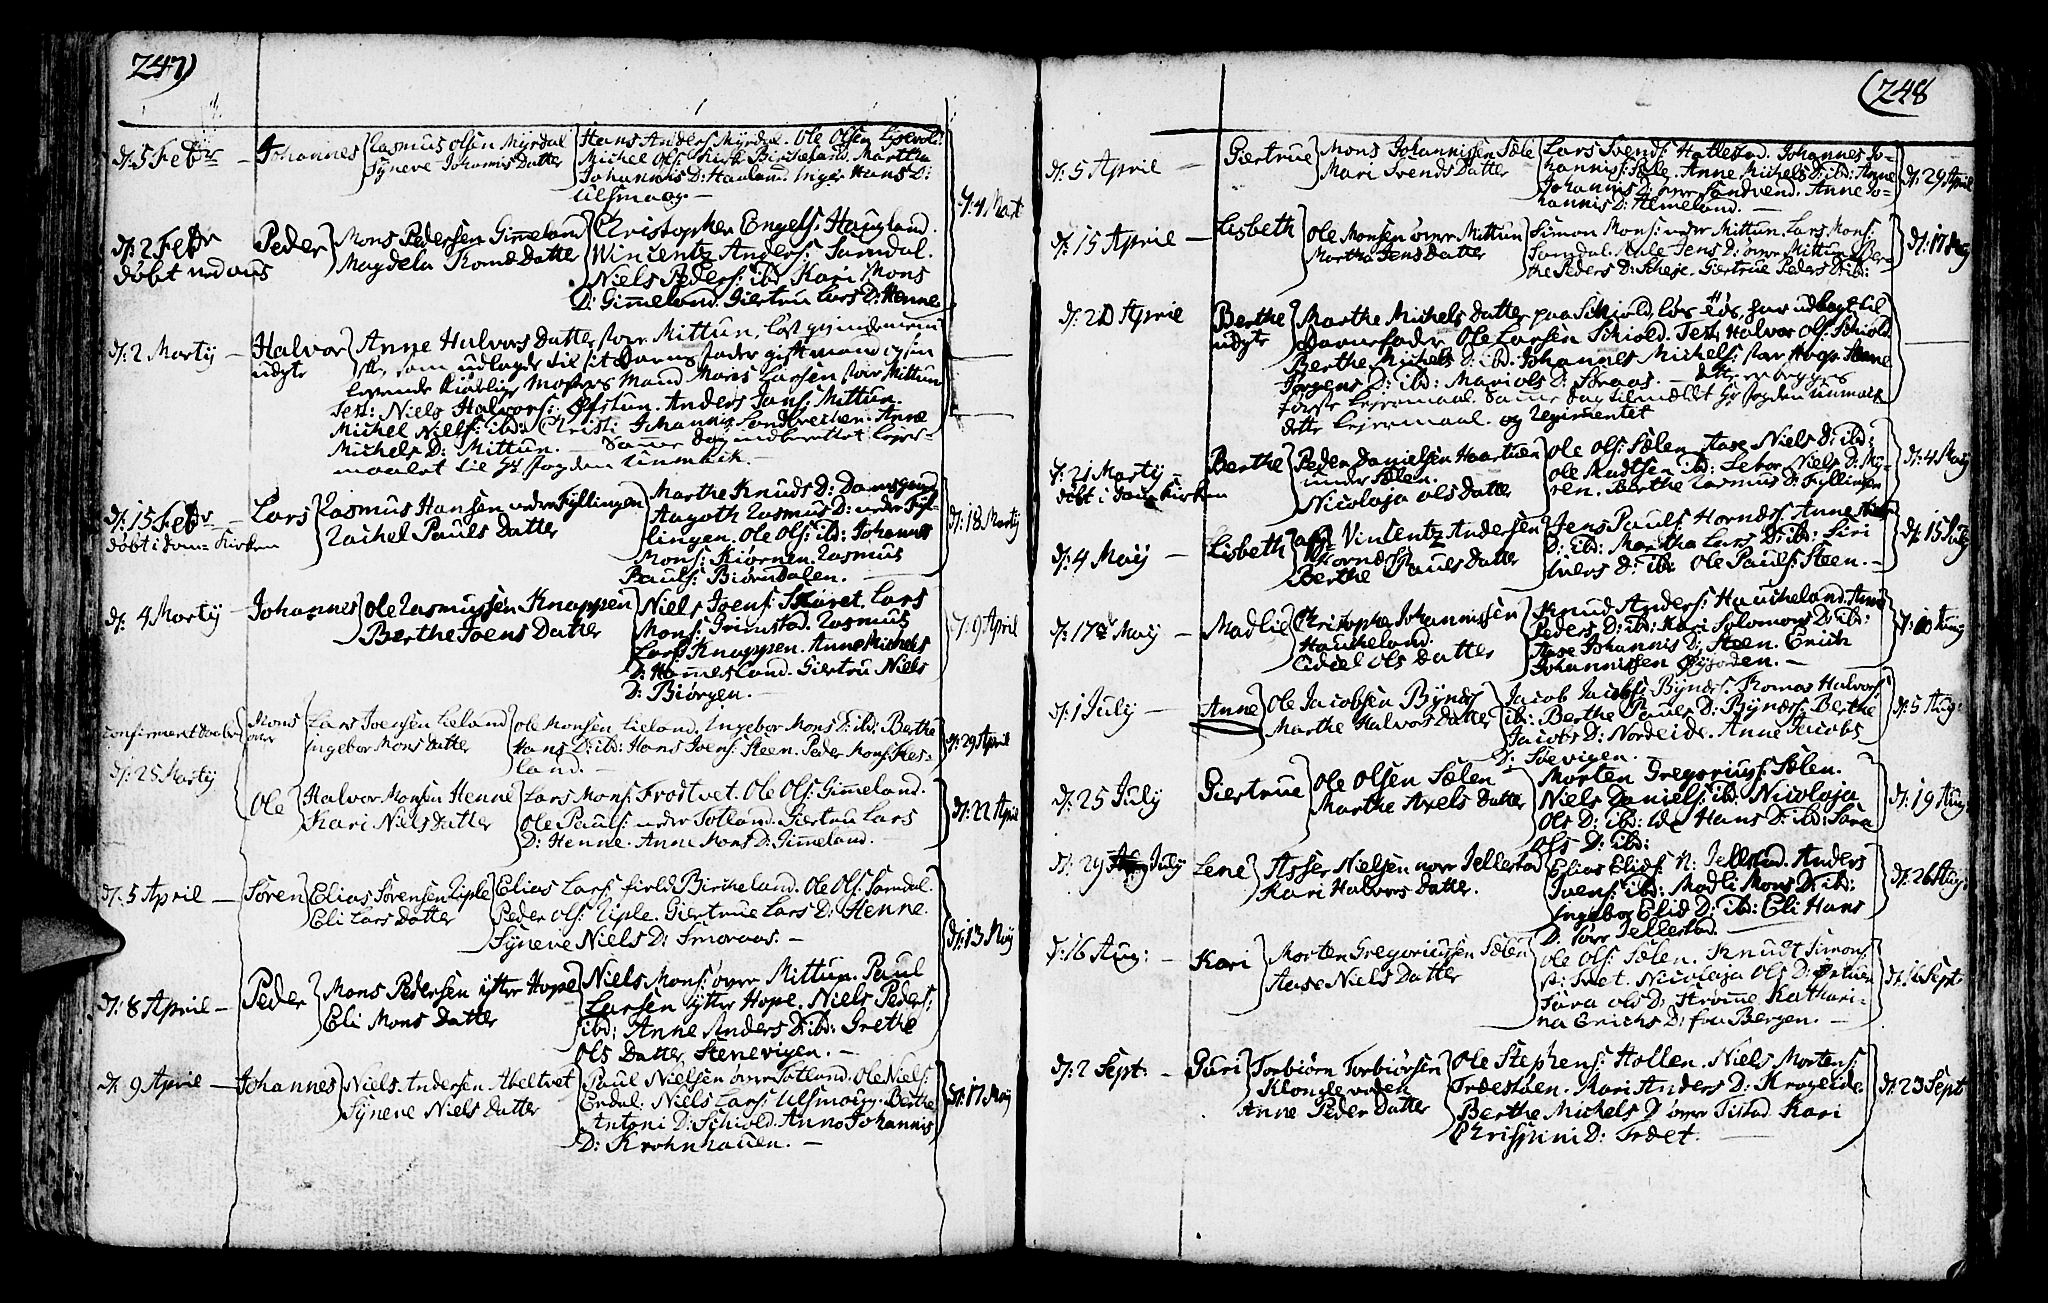 247)
d: 5 Febr
Johannes
Rasmus Olsen Myrdal
Syneve Johannis Datter
Hans Anders: Myrdal. Ole Olsen
Michel Ols: Kirk Birkeland. Martha
Johannis D: Hauland. Inger Hans D:
Ulsmaag.
d: 4 Mart
d: 2 Febr
døbt ved
Peder
Mons Pedersen Gimeland
Magdela Rome Datter
Christopher Engels: Haugland.
Wincentz Anders: Samdal.
Niels Peders: ibd: Kari Mons
D: Gimeland. Giertru Lars D: Henne
d: 2 Martij
Halvor
udgte
Anne Halvors Datter stor Mittun, løst
som udlagde til sit Barns fader gift mand
levende Mosters Mand Mons Larsen stor Mittun
Test: Niels Halvors: Øfstun. Anders Jans: Mittun.
Michel Niels: ibd: Christi Sandbrecken. Anne
Michels D: Mittun. Same dag indberettet lejer-
maalet til Hr fogden Unmack.
d: 15 Febr
døbt i dom-Kirken
Lars
Rasmus Hansen nedre Fyllingen
Rachel Pauls Datter
Marthe Knuds D: Damsgaard
Aagoth Rasmus D: nedre Fyl-
lingen. Ole Ols: ibd: Johannes
Mons: Kiørnen. Rasmus
Pauls: Biørndalen.
d: 18 Martij
d: 4 Martij
Johannes
Ole Rasmussen Knappen
Berthe Joens Datter
Niels Joens: Skaret. Lars
Mons: Grimstad. Rasmus
Lars: Knappen. Anne Michels
D: Hamersland. Giertru Niels
D: Biørgen.
d: 9 April
Confirmert Daab
Mons
Lars Joensen Lieland
Ingebor Mons Datter
Ole Monsen Lieland. Ingebor Mons D: ibd: Berthe
Hans D: ibd: Hans Joens: Steen. Peder Mons: Hes-
land.
d: 29 April
d: 25 Martij
Ole
Halvor Monsen Henne
Kari Niels Datter
Lars Mons: Frodtvet. Ole Ols: Gimeland.
Ole Pauls: nedre Totland. Giertru Lars
D: Henne. Anne Mons D: Gimeland.
d: 22 April
d: 5 April
Søren
Elias Sørensen Riple
Eli Lars Datter
Elias Lars: field Birkeland. Ole Ols: Samdal.
Peder Ols: Riple. Giertrue Lars D: Henne.
Syneve Niels D: Smoraas.
d: 13 Maij
d: 8 April
Peder
Mons Pedersen ijtter Hope
Eli Mons Datter
Niels Mons: øvre Mittun. Paul
Larsen ijtter Hope. Niels Peders:
ibd: Anne Anders D: ibd: Grethe
Ols Datter Stenevigen.
d: 9 April
Johannes
Niels Andersen Abeltvet
Syneve Niels Datter
Paul Nielsen øvre Totland. Ole Niels:
Erdal: Niels Lars: Ulsmaag. Berthe
Antoni D: Schiold. Anne Johannis
D: Krohnhauen.
d: 17 Maij
(248
d: 5 April
Giertrue
Mons Johannissen Søle
Mari Svends Datter
Lars Svends: Hatlestad. Johannes Jo-
hannis: Søle. Anne Michels D: ibd: Anne
Johannis D: øvre Sandvend. Anne Jo-
hannis D: Almeland.
d: 29 April
d: 15 April
Lisbeth
Ole Monsen øvre Mittun
Martha Jens Datter
Simon Mons: nedre Mittun. Lars Mons:
Samdal. Jens D: øvre Mittun. Ber-
the Peders D: Scheje. Giertrue Peders D: ibd:
d: 17 Maij
d: 20 April
Berthe
udgte
Marthe Michels Datter paa Schiold, løs har udlagt til
Barnefader Ole Larsen Schiold. Test: Halvor Ols: Schiold
Berthe Michels D: ibd: Johannes Michels: stor Hope.
Jørgens D: ibd: Mari Ols D: Straas.
første lejermaal. Same dag tilmeldet Hr fogden Unmack
dette lejermaal. og Regimentet
d: 21 Martij
døbt i dom Kirken
Berthe
Peder Danielsen Haartuen
under Sælen.
Nicolaja Ols Datter
Ole Ols: Sælen. Aase Niels D: ibd:
Ole Madtsen ibd: Lebor Niels D: My-
ren. Berthe Rasmus D: Fyllingen
d: 4 Maij
d: 4 Maij
Lisbeth
Vintentz Andersen
Hornæss
Berthe Pauls Datter
Jens Pauls: Hornæs. Anne
D: ibd: Martha Lars D: ibd: Siri
Ivers D: ibd: Ole Pauls: Steen.
d: 15 July
d: 17de Maij
Madlie
Christopher Johannissen
Haucheland
Ols Datter
Knud Anders: Haucheland. Anne
Peders D: ibd: Kari Solomons D: ibd:
Aase Johannis D: Steen. Erich
Johannissen Øijorden.
d: 10 Aug
d: 1 July
Anne
Ole Jacobsen Bynæs
Marthe Halvors Datter
Jacob Jacobs: Bynæs. Thomas Halvors:
ibd: Berthe Pauls D: Bynæs. Berthe
Jacobs D: Nordeide. Anne Jacobs
D: Søevigen.
d: 5 Aug:
d: 25 July
Giertrue
Ole Olsen Sælen
Marthe Axels Datter
Morten Gregoriuss: Sælen.
Niels Daniels: ibd: Nicolaja
Ols D: ibd: Ide Hans D: ibd: Sara
Ols D: ibd:
d: 19 Aug
d: 29 July
Lene
Asser Nielsen nore Jellestad
Kari Halvors Datter.
Elias Elids: N: Jellestad. Anders
Joens: ibd: Madli Mons D: ibd:
Ingebor Elid D: ibd: Eli Hans
D: søre Jellestad.
d: 26 Aug:
d: 16 Aug:
Kari
Morten Gregoriussen Sælen
Aase Niels Datter
Ole Ols: Sælen. Knudt Simons:
Tvet. Nicolaja Ols D: Ørtuen
Sara Ols D: Strøme. Kathari-
na Erichs D: fra Bergen.
d: 16 Sept:
d: 2 Sept:
Guri
Torbiørn Torbiørsen
Klokkevaden
Anne Peder Datter
Ole Stephens: Hollen. Niels Mortens:
Trædstølen. Mari Anders D: Krogeide
Berthe Michels D: øvre Tistad. Kari
Chrispini D: Trædet.
d: 23 Sept